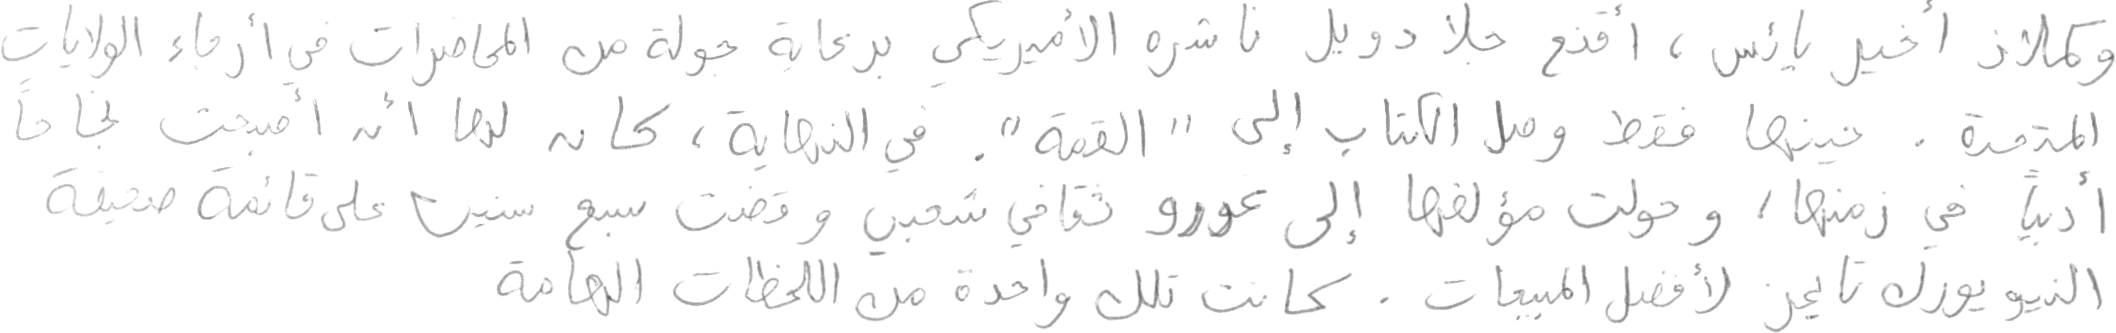 وكملاذ أخير يائس، أقنع جلادويل ناشره الأميريكي برعاية جولة من المحاضرات في أرجاء الولايات
المتحدة. حينها فقط وصل الكتاب إلى "القمة". في النهاية، كان لها أنه أصبحت نجاحاً
أدبياً في زمنها، وحولت مؤلفها إلى غورو ثقافي شعبي وقضت سبع سنين على قائمة صحيفة
النيويورك تايمز لأفضل المبيعات. كانت تلك واحدة من اللحظات الهامة